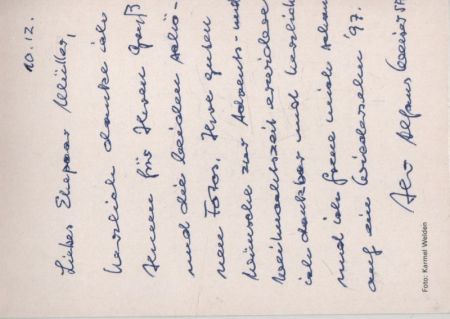 10.12.
Liebes Ehepaar Müller,
herzlich danke ich
Ihnen für Ihren Gruß
und die beiden schö-
nen Fotos. Ihre guten
Wünsche zur Advents- und
Weihnachtszeit erwidere
ich dankbar und herzlich
und ich freue mich schon
auf ein Wiedersehen '97.
Ihr
Foto: Karmel Weiden